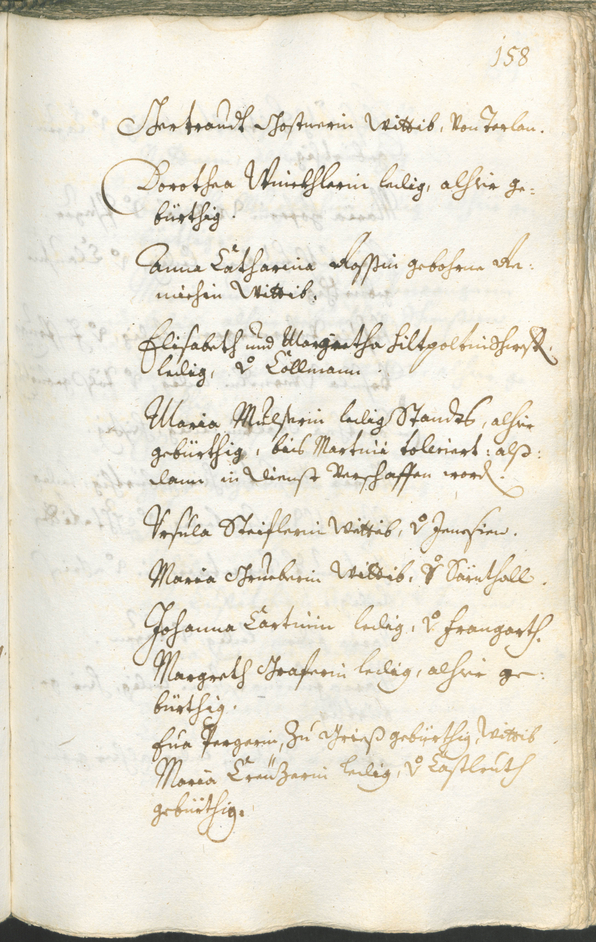 158
Gertraudt Gostnerin Wittib, von Terlan.
Dorothea Winckhlerin ledig, alhie ge-
bürthig.
Anna Catharina Rossin gebohrne
Wittib.
Elisabeth und Margretha
ledig, v Cöllmann.
Maria Mulserin ledig Standts, alhie
gebürthig, bis Martini tolleriert: alß-
dann in Dienst verschaffen word
Ursula Steiflerin Wittib, v Jenesien.
Maria Grueberin Wittib, v Särnthall.
Johanna Cartinin ledig, v Frangarth.
Margreth Graferin ledig, alhie ge-
bürthig.
Eva Pergerin, zu Grieß gebürthig, Wittib
Maria Creüzerin ledig, v Castlruth
gebürthig.